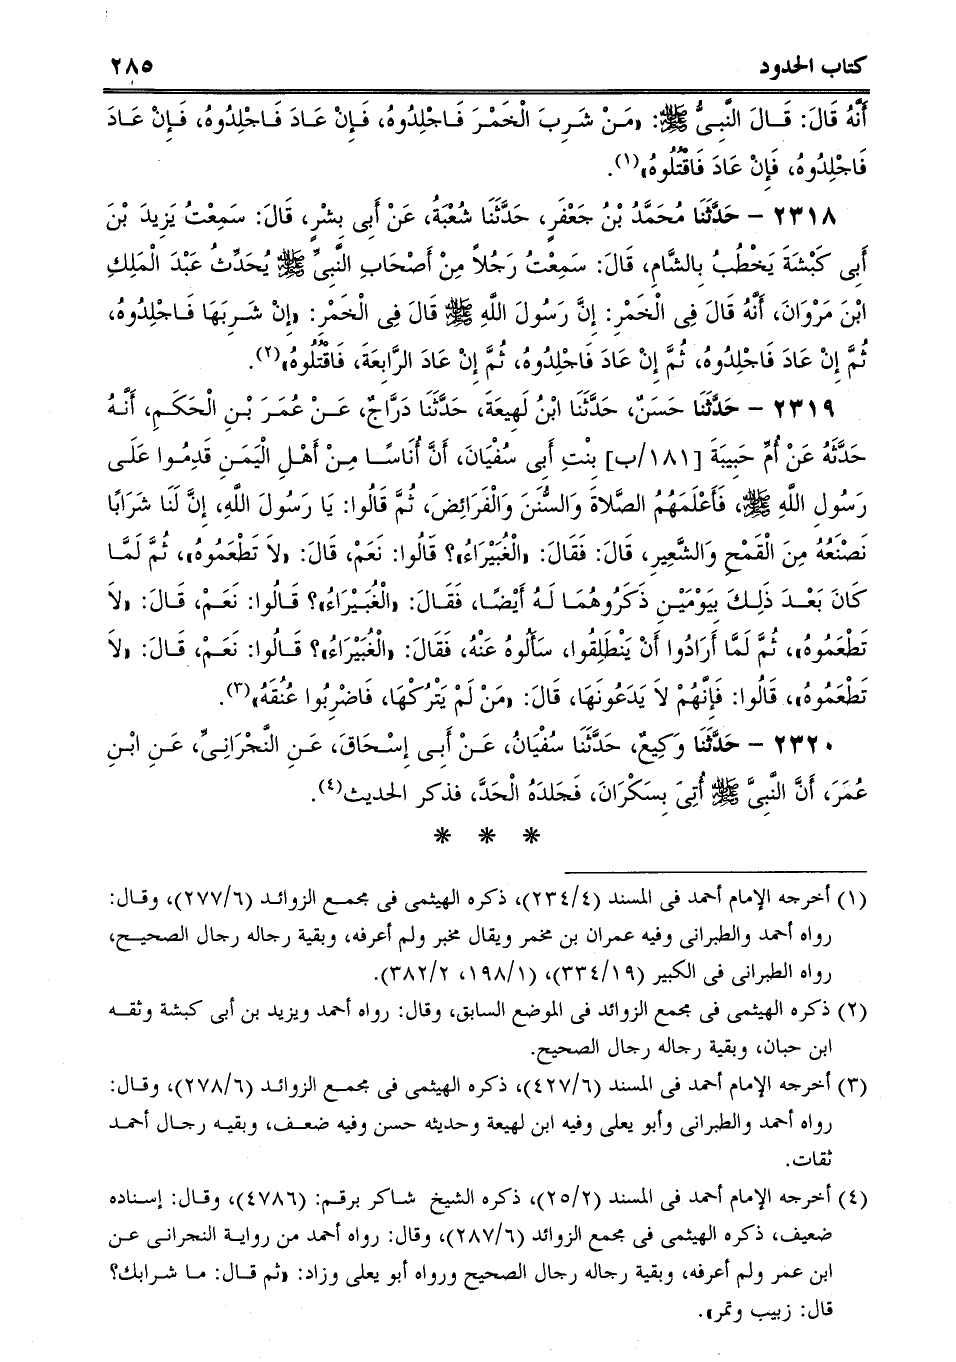 كتاب الحدود ٢٨٥
أَنَّهُ قَالَ: قَـالَ النَّبِىُّ ﷺ: «مَـنْ شَـرِبَ الْخَمْـرَ فَـاجْلِدُوهُ، فَـإِنْ عَـادَ فَـاجْلِدُوهُ، فَـإِنْ عَـادَ
فَاجْلِدُوهُ، فَإِنْ عَادَ فَاقْتُلُوهُ»(١).
٢٣١٨ - حَدَّثَنَا مُحَمَّدُ بْنُ جَعْفَرٍ، حَدَّثَنَا شُعْبَةُ، عَنْ أَبِى بِشْرٍ، قَالَ: سَمِعْتُ يَزِيدَ بْنَ
أَبِى كَبْشَةَ يَخْطُبُ بِالشَّامِ، قَالَ: سَمِعْتُ رَجُلاً مِنْ أَصْحَابِ النَّبِىِّ ﷺ يُحَدِّثُ عَبْدَ الْمَلِكِ
ابْنَ مَرْوَانَ، أَنَّهُ قَالَ فِى الْخَمْرِ: إِنَّ رَسُولَ اللَّهِ ﷺ قَالَ فِى الْخَمْرِ: «إِنْ شَـرِبَهَا فَـاجْلِدُوهُ،
ثُمَّ إِنْ عَادَ فَاجْلِدُوهُ، ثُمَّ إِنْ عَادَ فَاجْلِدُوهُ، ثُمَّ إِنْ عَادَ الرَّابِعَةَ، فَاقْتُلُوهُ»(٢).
٢٣١٩ - حَدَّثَنَا حَسَنٌ، حَدَّثَنَا ابْنُ لَهِيعَةَ، حَدَّثَنَا دَرَّاجٌ، عَـنْ عُمَـرَ بْـنِ الْحَكَـمِ، أَنَّـهُ
حَدَّثَهُ عَنْ أُمِّ حَبِيبَةَ [١٨١/ب] بِنْتِ أَبِى سُفْيَانَ، أَنَّ أُنَاسًـا مِـنْ أَهْـلِ الْيَمَـنِ قَدِمُـوا عَلَـى
رَسُولِ اللَّهِ ﷺ، فَأَعْلَمَهُمُ الصَّلاةَ وَالسُّنَنَ وَالْفَرَائِضَ، ثُمَّ قَالُوا: يَا رَسُولَ اللَّهِ، إِنَّ لَنَا شَرَابًا
نَصْنَعُهُ مِنَ الْقَمْحِ وَالشَّعِيرِ، قَالَ: فَقَالَ: «الْغُبَيْرَاءُ»؟ قَالُوا: نَعَمْ، قَالَ: «لاَ تَطْعَمُوهُ»، ثُمَّ لَمَّـا
كَانَ بَعْـدَ ذَلِـكَ بِيَوْمَيْـنِ ذَكَرُوهُمَـا لَـهُ أَيْضًـا، فَقَـالَ: «الْغُبَيْرَاءُ»؟ قَـالُوا: نَعَـمْ، قَـالَ: «لاَ
تَطْعَمُوهُ»، ثُمَّ لَمَّا أَرَادُوا أَنْ يَنْطَلِقُوا، سَأَلُوهُ عَنْهُ، فَقَالَ: «الْغُبَيْرَاءُ»؟ قَـالُوا: نَعَمْ، قَـالَ: «لاَ
تَطْعَمُوهُ»، قَالُوا: فَإِنَّهُمْ لاَ يَدَعُونَهَا، قَالَ: «مَنْ لَمْ يَتْرُكْهَا، فَاضْرِبُوا عُنُقَهُ»(٣).
٢٣٢٠ - حَدَّثَنَا وَكِيعٌ، حَدَّثَنَا سُفْيَانُ، عَـنْ أَبِـى إِسْـحَاقَ، عَـنِ النَّجْرَانِـىِّ، عَـنِ ابْـنِ
عُمَرَ، أَنَّ النَّبِىَّ ﷺ أُتِىَ بِسَكْرَانَ، فَجَلَدَهُ الْحَدَّ، فذكر الحديث(٤).
* * *
(١) أخرجه الإمام أحمد فى المسند (٢٣٤/٤)، ذكره الهيثمى فى مجمـع الزوائـد (٢٧٧/٦)، وقـال:
رواه أحمد والطبرانى وفيه عمران بن مخمر ويقال مخبر ولم أعرفه، وبقية رجاله رجال الصحيـح،
رواه الطبرانى فى الكبير (٣٣٤/١٩)، (١٩٨/١، ٣٨٢/٢).
(٢) ذكره الهيثمى فى مجمع الزوائد فى الموضع السابق، وقال: رواه أحمد ويزيد بن أبى كبشة وثقـه
ابن حبان، وبقية رجاله رجال الصحيح.
(٣) أخرجه الإمام أحمد فى المسند (٤٢٧/٦)، ذكره الهيثمى فى مجمـع الزوائـد (٢٧٨/٦)، وقـال:
رواه أحمد والطبرانى وأبو يعلى وفيه ابن لهيعة وحديثه حسن وفيه ضعـف، وبقيـه رجـال أحمـد
ثقات.
(٤) أخرجه الإمام أحمد فى المسند (٢٥/٢)، ذكره الشيخ شـاكر برقـم: (٤٧٨٦)، وقـال: إسـناده
ضعيف، ذكره الهيثمى فى مجمع الزوائد (٢٨٧/٦)، وقال: رواه أحمد من روايـة النجرانـى عـن
ابن عمر ولم أعرفه، وبقية رجاله رجال الصحيح ورواه أبو يعلى وزاد: «ثم قـال: مـا شـرابك؟
قال: زبيب وتمر».